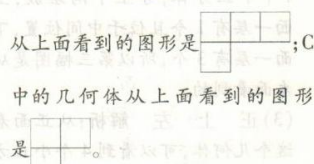 从上面看到的图形是;C
中的几何体从上面看到的图形
是。